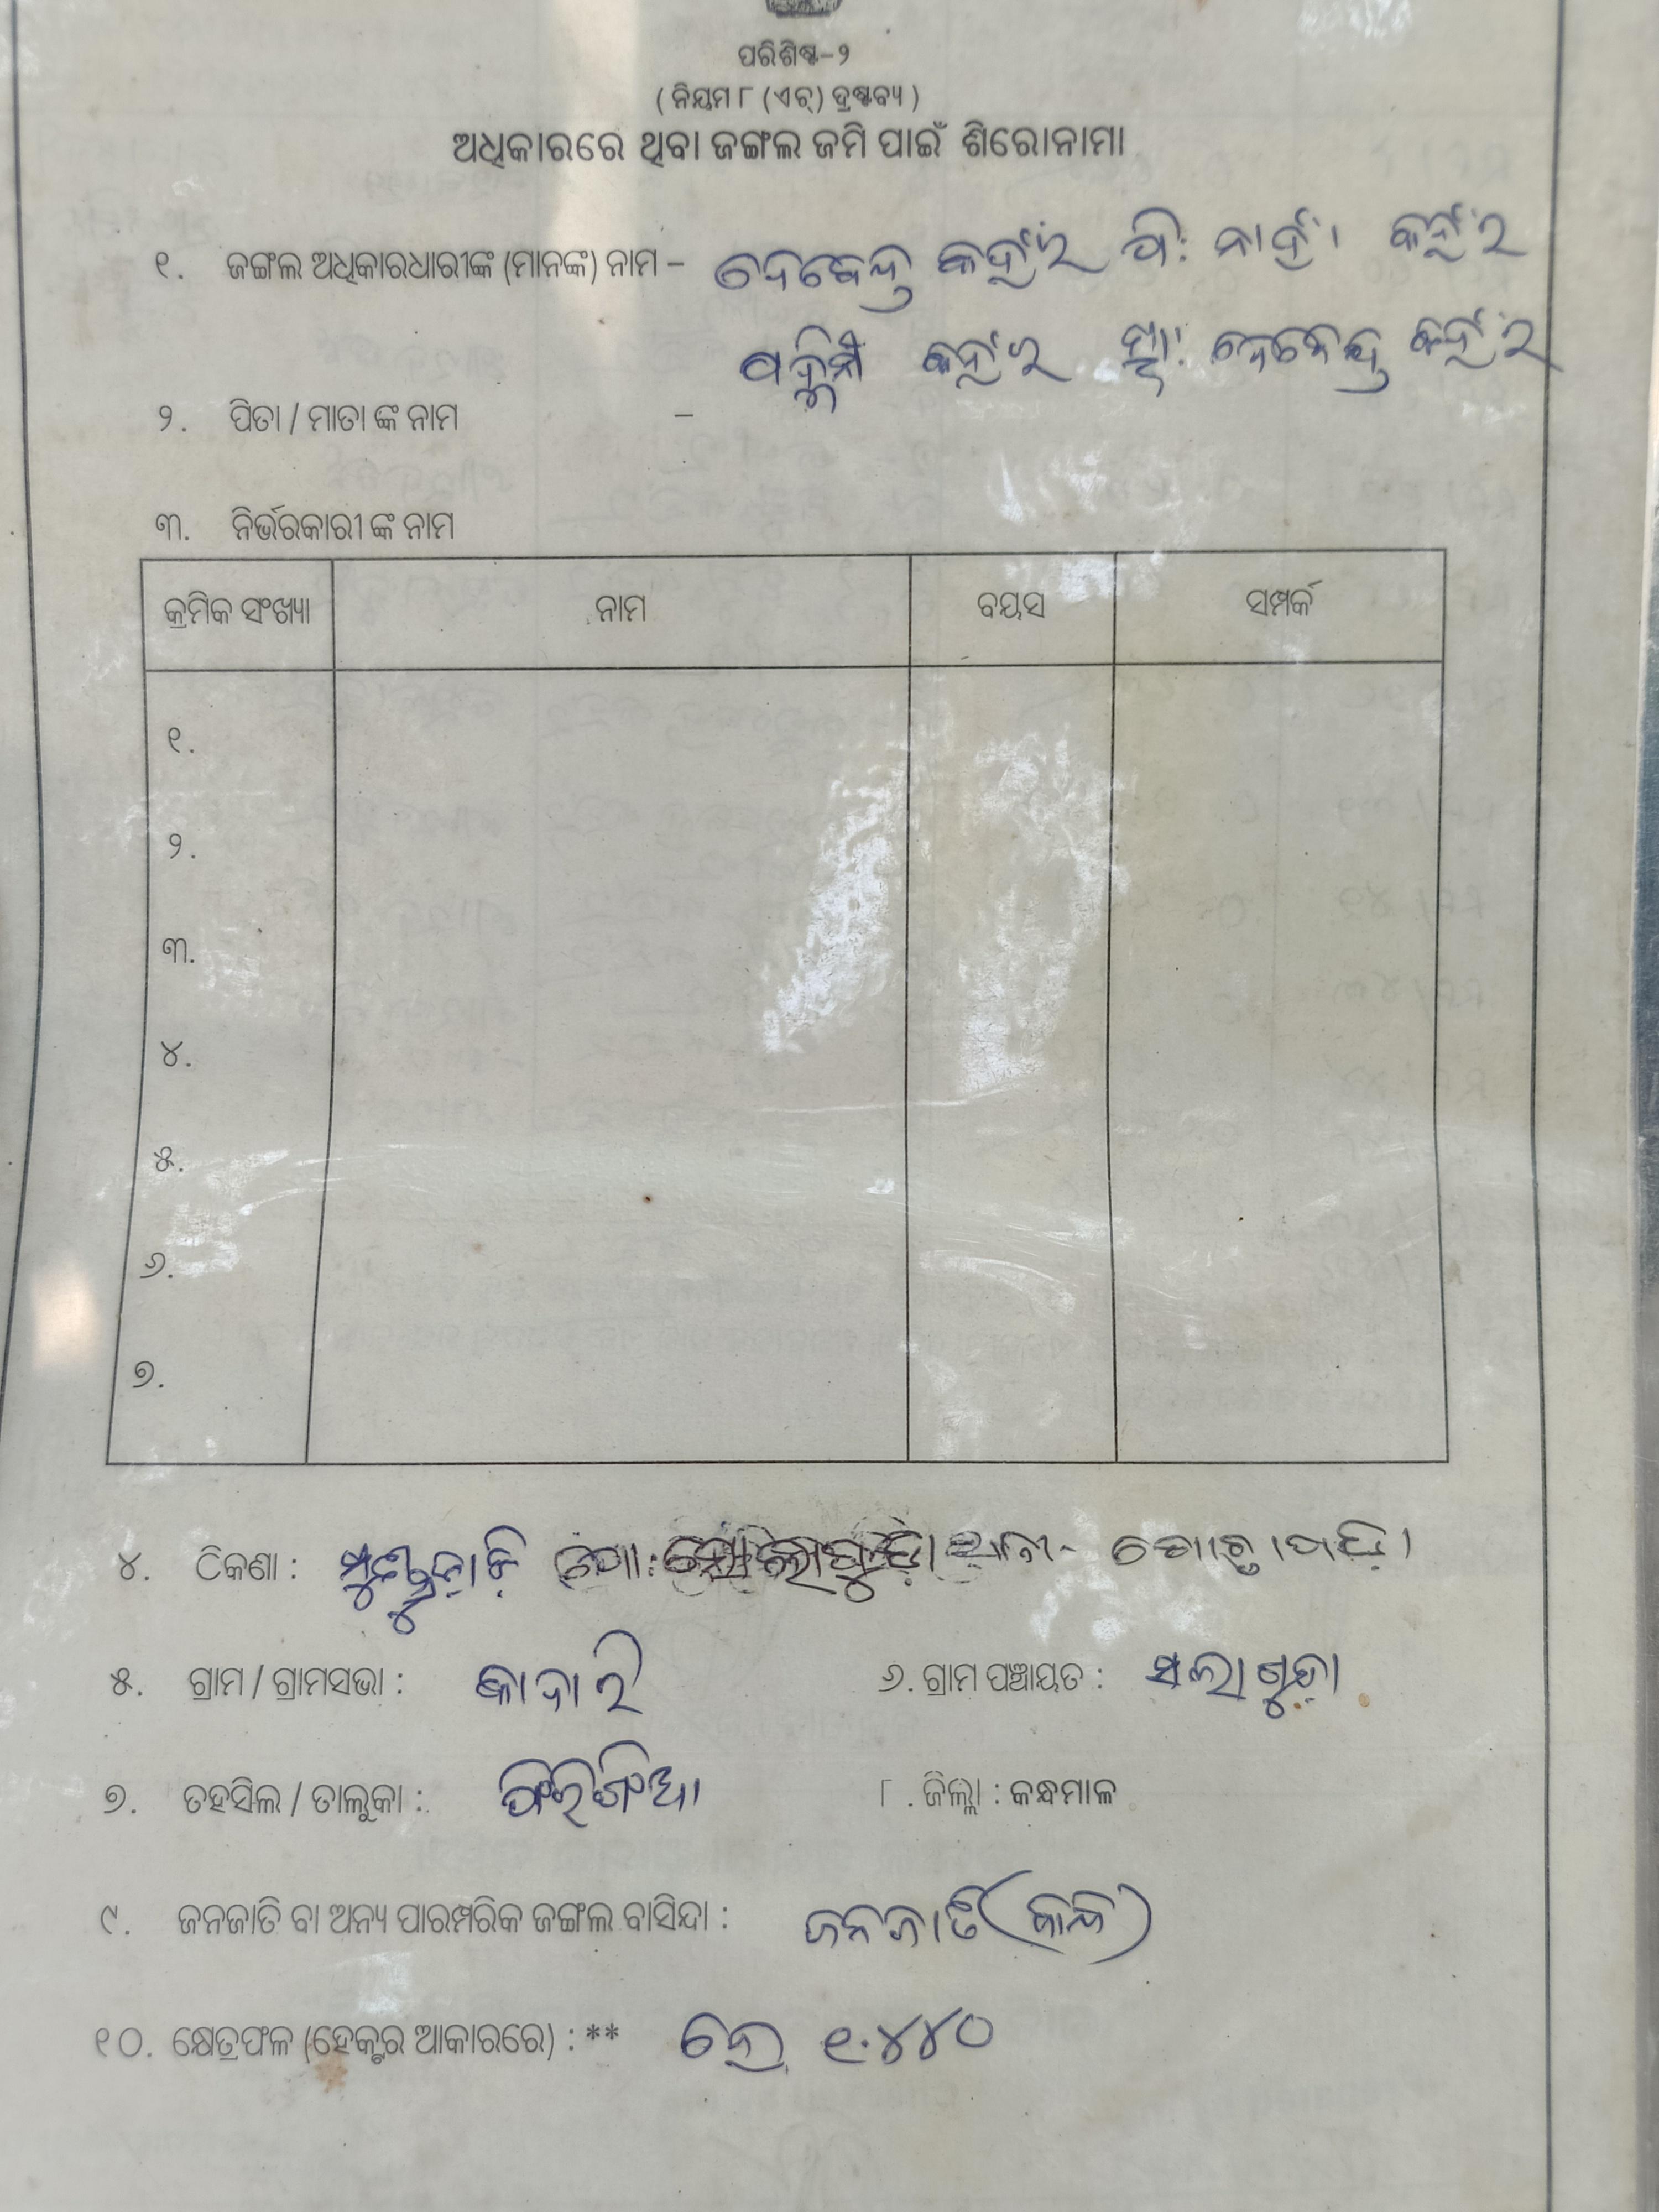 ପରିଶିଷ୍ଟ–୨
( ନିୟମ ୮ (ଏଚ୍) ଦ୍ରଷ୍ଟବ୍ୟ )
ଅଧିକାରରେ ଥିବା ଜଙ୍ଗଲ ଜମି ପାଇଁ ଶିରୋନାମା
୧. ଜଙ୍ଗଲ ଅଧିକାରଧାରୀଙ୍କ (ମାନଙ୍କ) ନାମ – ଦେବେନ୍ଦ୍ର କହଁର ପି: କହଁର
କହଁର ଦେବେନ୍ଦ୍ର କହଁର
୨. ପିତା / ମାତା ଙ୍କ ନାମ –
୩. ନିର୍ଭରକାରୀ ଙ୍କ ନାମ
କ୍ରମିକ ସଂଖ୍ୟା ନାମ ବୟସ ସମ୍ପର୍କ
୧.
୨.
୩.
୪.
୫.
୬.
୭.
୪. ଠିକଣା :
୫. ଗ୍ରାମ / ଗ୍ରାମସଭା : ୬. ଗ୍ରାମ ପଞ୍ଚାୟତ :
୭. ତହସିଲ / ତାଲୁକା : ଫିରିଙ୍ଗିଆ ୮. ଜିଲ୍ଲା : କନ୍ଧମାଳ
୯. ଜନଜାତି ବା ଅନ୍ୟ ପାରମ୍ପରିକ ଜଙ୍ଗଲ ବାସିନ୍ଦା : ଜନଜାତି (କନ୍ଧ)
୧୦. କ୍ଷେତ୍ରଫଳ (ହେକ୍ଟର ଆକାରରେ) : ** ହେ ୧.୪୪୦